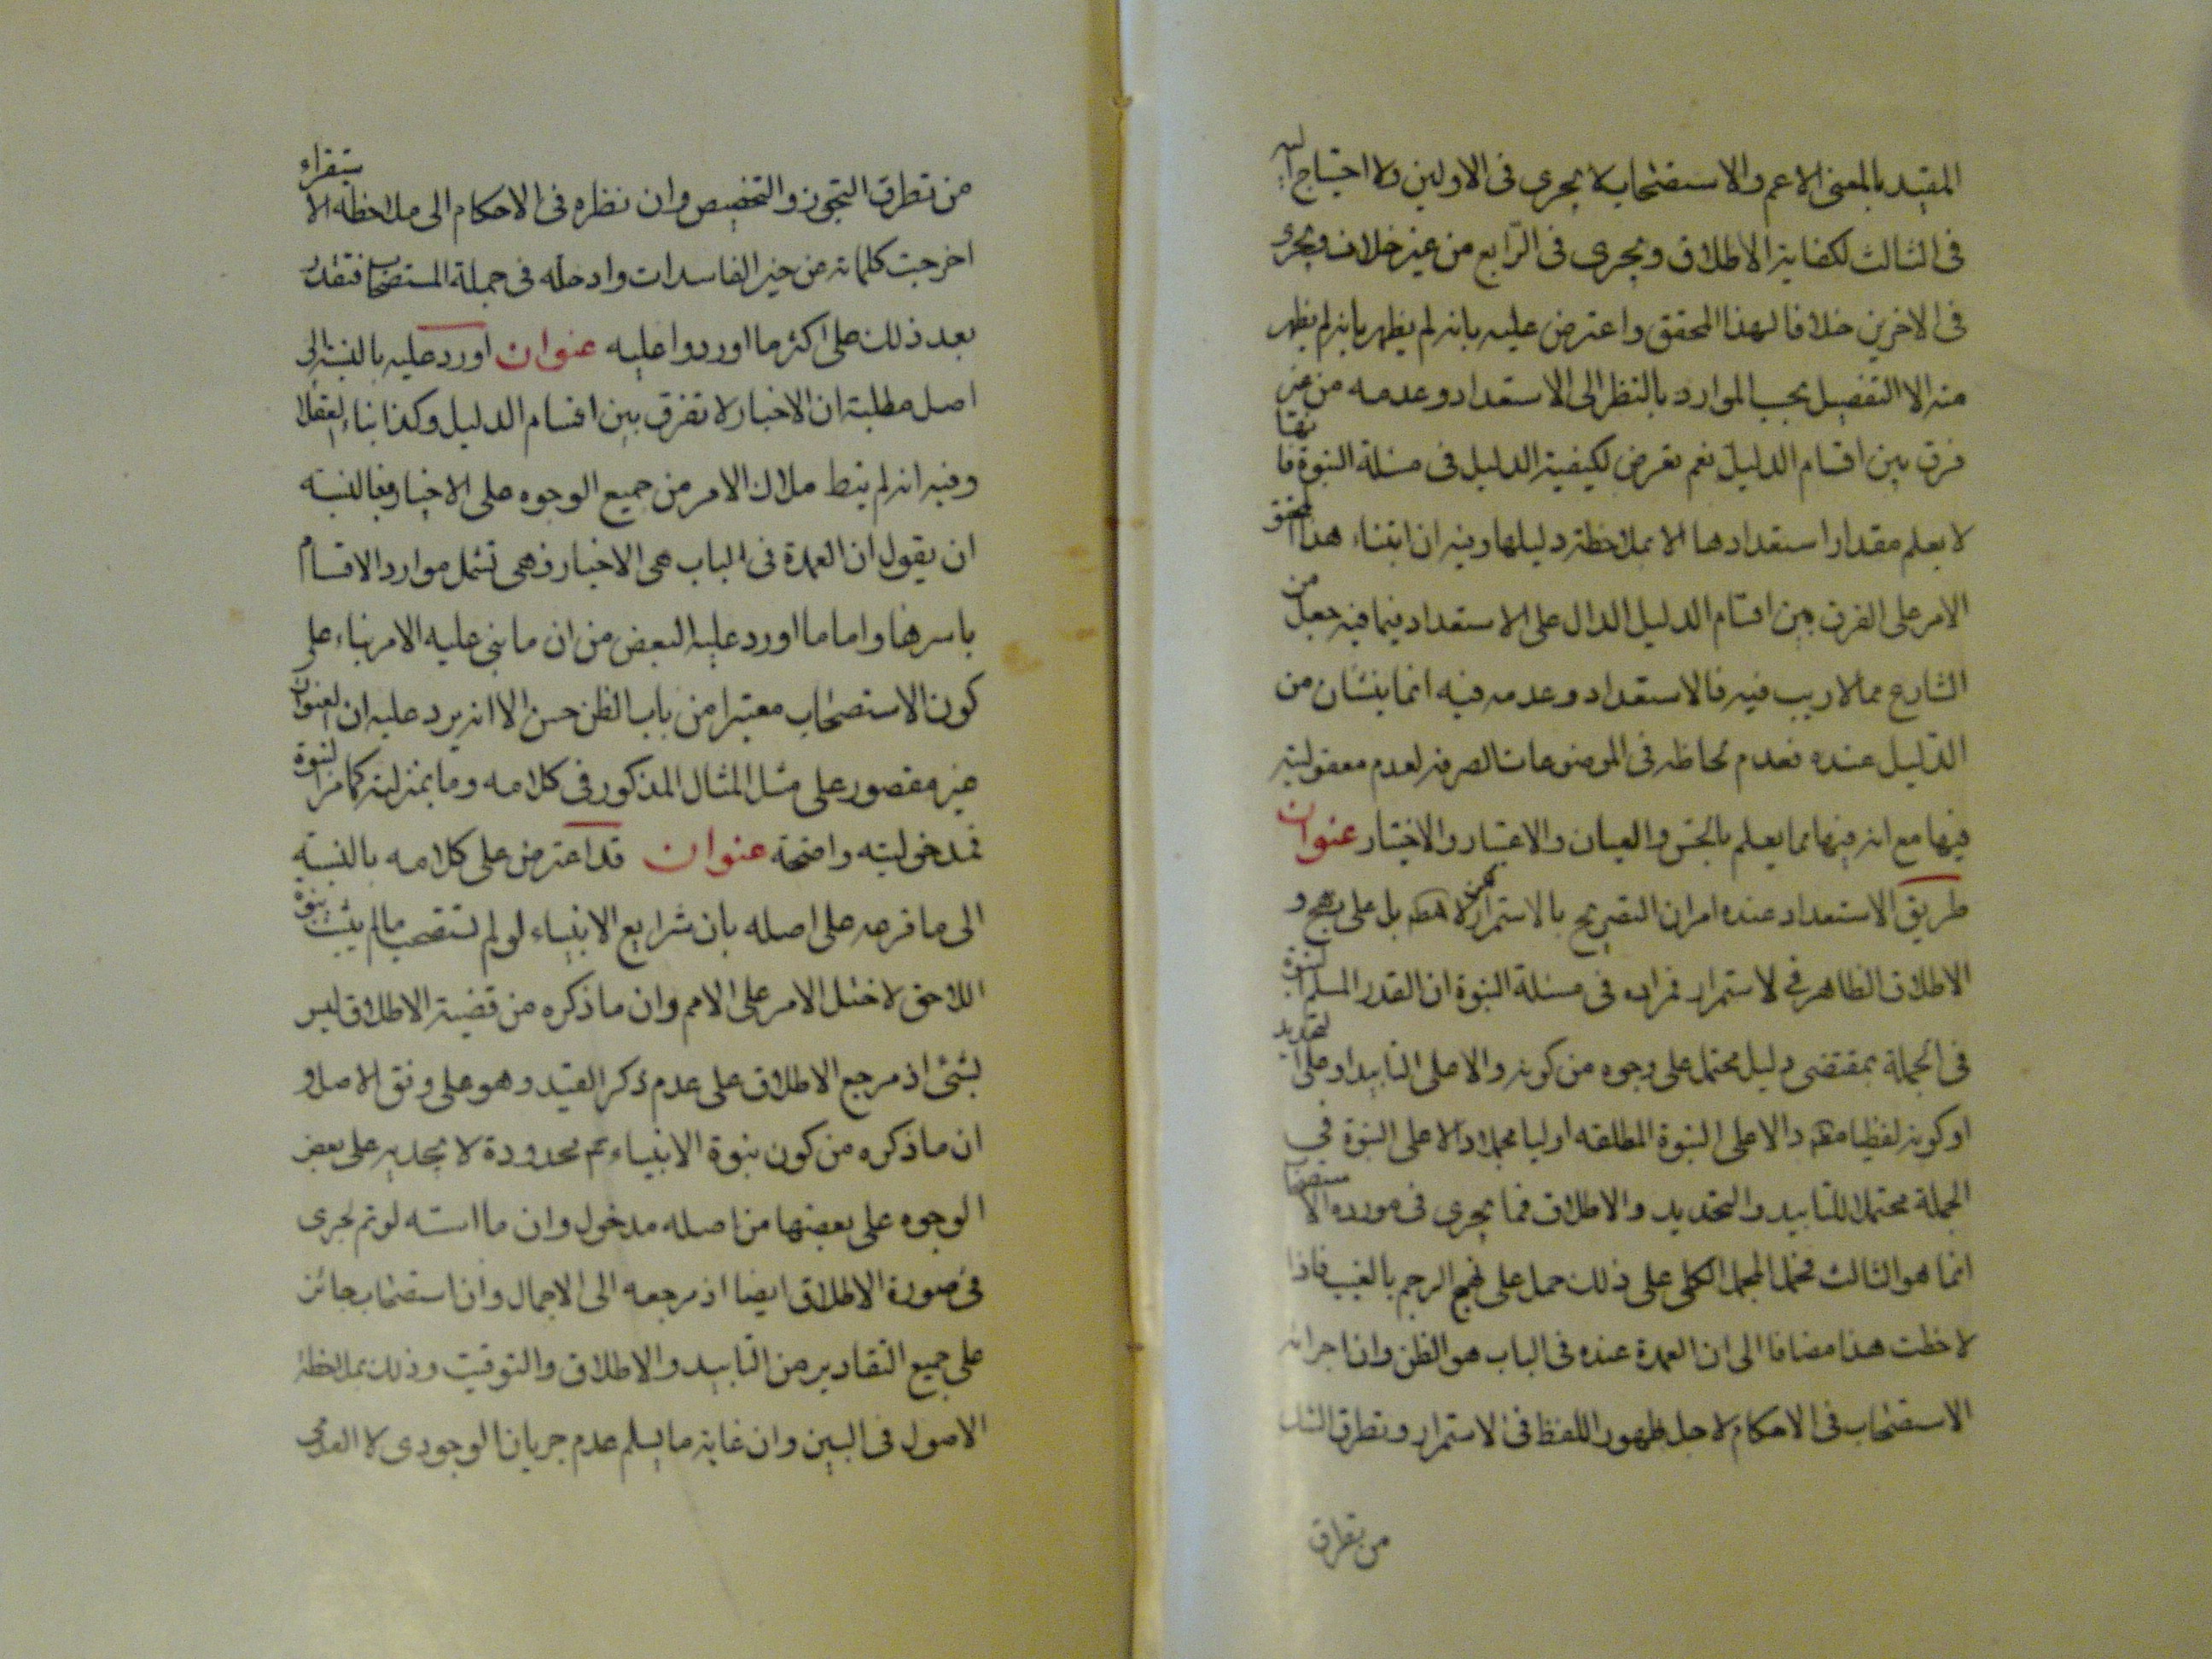 المقيد بالمعنى الاعم والاستصحاب لا يجرى فى الاولين ولا احتياج اليه
فى الثالث لكفاية الاطلاق ويجرى فى الرّابع من غير خلاف ويجرى
فى الاخرين خلافا لهذا المحقق واعترض عليه بانه لم يظهر بانه لم يظهر
منه الا التفصيل بحسب الموارد بالنظر الى الاستعداد وعدمه من غير
فرق بين اقسام الدليل نعم تعرض لكيفية الدليل فى مسئلة النبوة
لا يعلم مقدار استعدادها الا بملاحظة دليلها وفيه ان ابتناء هذا المحقق
الامر على الفرق بين اقسام الدليل الدال على الاستعداد فيما فيه جعل من
الشارع مما لا ريب فيه فالاستعداد وعدمه فيه انما ينشان من
الدّليل عنده فعدم لحاظه فى الموضوعات الصرفة لعدم معقوليته
فيها مع انه فيها مما يعلم بالحس والعيان والاعتبار والاختبار عنوان
طريق الاستعداد عنده امران التصريح بالاستمرار لا بل على نهج و
الاطلاق الظاهر فى الاستمرار فمراده فى مسئلة النبوة ان القدر المسلم النبوة
فى الجملة بمقتضى دليل محتمل على وجوه من كونه دالا على التابيد او على التحديد
او كونه لفظيا دالا على النبوة المطلقه او لبيا مجملا دالا على النبوة فى
الجملة محتملا للتابيد والتحديد والاطلاق فما يجرى فى مورده الاستصحاب
انما هو الثالث فحمل المجمل الكلى على ذلك حمل على نهج الرجم بالغيب فاذا
لاحظت هذا مضافا الى ان العمدة عنده فى الباب هو الظن وان اجرائه
الاستصحاب فى الاحكام لاجل ظهور اللفظ فى الاستمرار وتطرق الشك
من تطرق
من تطرق التجوز والتخصيص وان نظره فى الاحكام الى ملاحظة الاستقراء
اخرجت كلماته عن حيز الفاسدات وادخله فى جملة فتقدر
بعد ذلك على اكثر ما اوردوا عليه عنوان اورد عليه بالنسبة الى
اصل مطلبه ان الاخبار لا تفرق بين اقسام الدليل وكذا بناء العقلا
وفيه انه لم ينط ملاك الامر من جميع الوجوه على الاخبار
ان يقول ان العمدة فى الباب هى الاخبار فهى تشمل موارد الاقسام
باسرها واما ما اورد عليه البعض من ان ما بنى عليه الامر بناء على
كون الاستصحاب معتبرا من باب الظن حسن الا انه يرد عليه ان العنوان
غير مقصور على مثل المثال المذكور فى كلامه وما بمنزلته كما مر النبوة
فمدخوليته واضحة عنوان قد اعترض على كلامه بالنسبة
الى ما فرعه على اصله بان شرايع الانبياء لو لم تستصحب ما لم يثبت نبوة
اللاحق لاختل الامر على الامم وان ما ذكره من قضية الاطلاق ليس
بشئ اذ مرجع الاطلاق على عدم ذكر القيد وهو على وفق الاصل و
ان ما ذكره من كون نبوة الانبياء عم محدودة لا يجديه على بعض
الوجوه على بعضها من اصله مدخول وان ما اسسه لو تم لجرى
فى صورة الاطلاق ايضا اذ مرجعه الى الاجمال وان استصحاب جائز
على جميع التقادير من التّابيد والاطلاق والتوقيت وذلك بملاحظة
الاصول فى البين وان غاية ما يسلم عدم جريان الوجودى لا العدمى